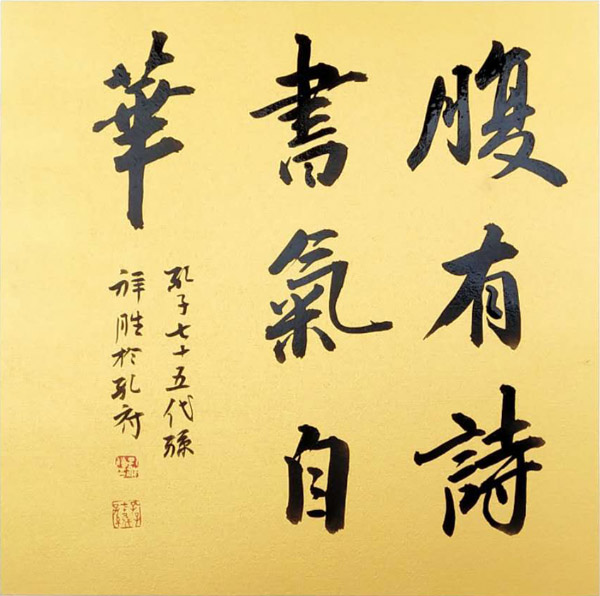 腹有詩
書氣自
華
孔子七十五代孫
祥胜於孔府